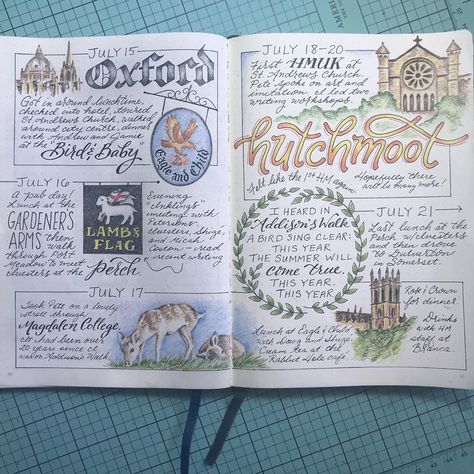 JULY 15
Oxford
Got in around lunchtime,
checked into hotel, toured
St Andrews Church, walked
around city centre, dinner
with Indalu and Jamie
at the "Bird & Baby"
Eagle and Child
JULY 16
A pub day!
Lunch at the
GARDENER'S
ARMS then
walk
through Port
Meadow to meet
cluesters at the
Perch
LAMB &
FLAG
Evening
"cInklings"
meeting with
Tiersons,
cluesters, Shigé,
and Micah
Carter – read
recent writing
JULY 17
Took Pete on a lovely
stroll through
Magdalen College,
It had been over
20 years since I
was on Addison's Walk.
JULY 18-20
First HMUK at
St Andrews Church.
Pete spoke on art and
invitation, I led two
writing workshops.
hutchmoot
Felt like the 1st HM again.
Hopefully there
will be many more!
I HEARD IN
Addison's Walk
A BIRD SING CLEAR:
THIS YEAR
THE SUMMER WILL
come true.
THIS YEAR.
THIS YEAR
JULY 21
Last lunch at the
Perch w/cluesters
and then drove
to Dulverton
in Somerset.
Rose & Crown
for dinner.
Drinks
with HM
staff at
Branca.
Lunch at Eagle & Child
with Doug and Shigé.
Cream tea at the
Rabbit Hole café